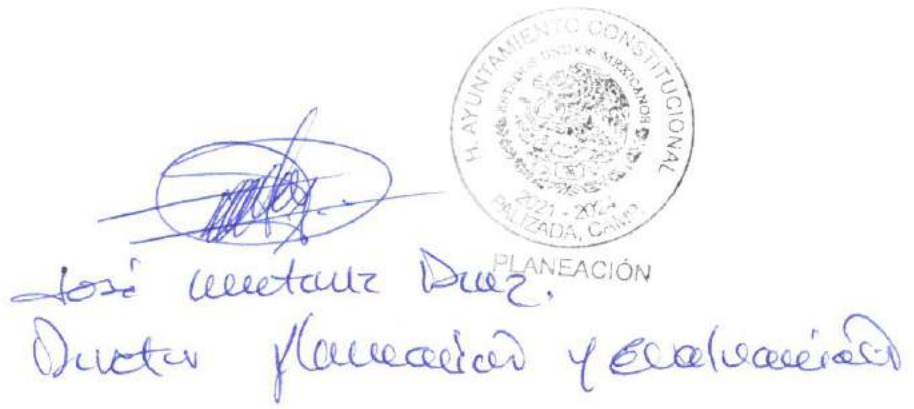 H. AYUNTAMIENTO CONSTITUCIONAL
ESTADOS UNIDOS MEXICANOS
2021 - 2024
PALIZADA, CAMP.
PLANEACIÓN
José
Director Planeación y Evaluación